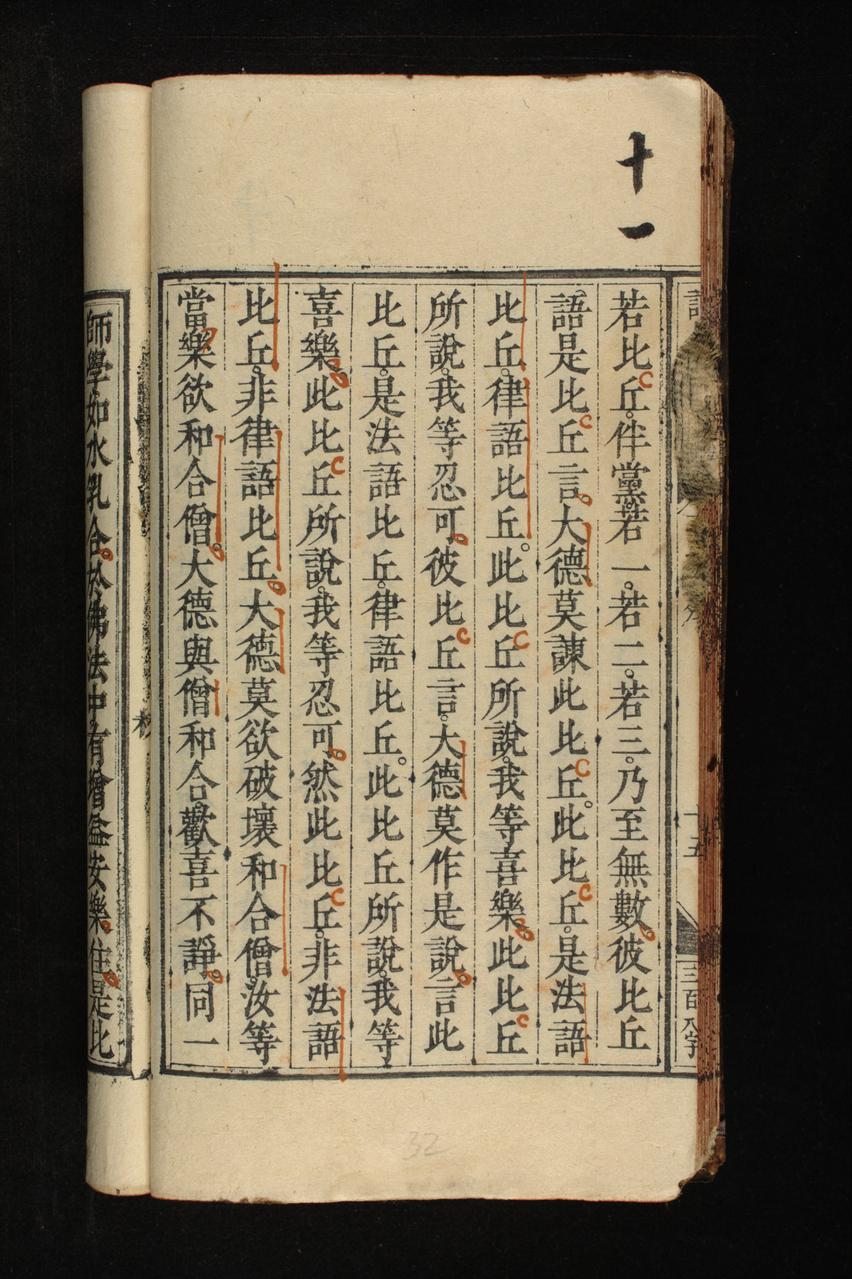 十一
十五
若比丘。伴黨若一。若二。若三。乃至無數。彼比丘
語是比丘言。大德莫諫此比丘。此比丘。是法語
比丘。律語比丘。此比丘所說。我等喜樂。此比丘
所說。我等忍可。彼比丘言。大德莫作是說。言此
比丘。是法語比丘。律語比丘。此比丘所說。我等
喜樂。此比丘所說。我等忍可。然此比丘。非法語
比丘。非律語比丘。大德莫欲破壞和合僧。汝等
當樂欲和合僧。大德與僧和合。歡喜不諍。同一
師學如水乳合。於佛法中。有增益安樂住。是比
32